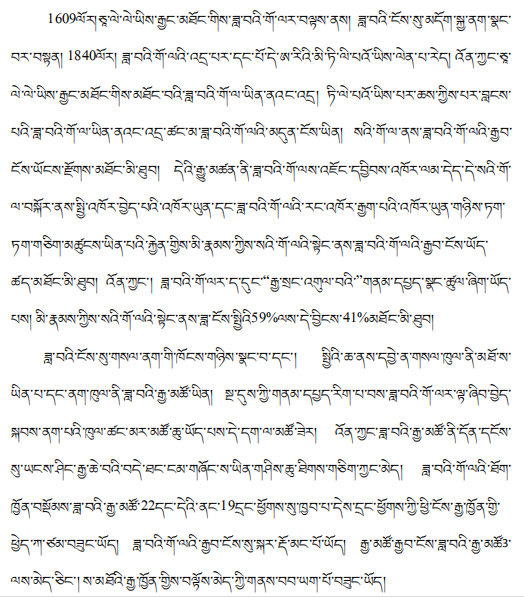 1609ལོར།ཅཱ་ལེ་ལེ་ཡིས་རྒྱང་མཐོང་གིས་ཟླ་བའི་གོ་ལར་བལྟས་ནས། ཟླ་བའི་ངོས་སུ་མདོག་སྐྱ་ནག་སྣང་
བར་བསྟན། 1840ལོར། ཟླ་བའི་གོ་ལའི་འདྲ་པར་དང་པོ་དེ་ཨ་རིའི་མི་ཏི་ལི་པའོ་ཡིས་ལེན་པ་རེད། འོན་ཀྱང་ཅཱ་
ལེ་ལེ་ཡིས་རྒྱང་མཐོང་གིས་མཐོང་བའི་ཟླ་བའི་གོ་ལ་ཡིན་ནའང་འདྲ། ཏི་ལེ་པའོ་ཡིས་པར་ཆས་ཀྱིས་པར་བླངས་
པའི་ཟླ་བའི་གོ་ལ་ཡིན་ནའང་འདྲ་ཚང་མ་ཟླ་བའི་གོ་ལའི་མདུན་ངོས་ཡིན། སའི་གོ་ལ་ནས་ཟླ་བའི་གོ་ལའི་རྒྱབ་
ངོས་ཡོངས་རྫོགས་མཐོང་མི་ཐུབ། དེའི་རྒྱུ་མཚན་ནི་ཟླ་བའི་གོ་ལས་འཇོང་དབྱིབས་འཁོར་ལམ་དེད་དེ་སའི་གོ་
ལ་བསྐོར་ནས་སྤྱི་འཁོར་བྱེད་པའི་འཁོར་ཡུན་དང་ཟླ་བའི་གོ་ལའི་རང་འཁོར་རྒྱག་པའི་འཁོར་ཡུན་གཉིས་ཏག་
ཏག་གཅིག་མཚུངས་ཡིན་པའི་རྐྱེན་གྱིས་མི་རྣམས་ཀྱིས་སའི་གོ་ལའི་སྟེང་ནས་ཟླ་བའི་གོ་ལའི་རྒྱབ་ངོས་ཡོད་
ཚད་མཐོང་མི་ཐུབ། འོན་ཀྱང་། ཟླ་བའི་གོ་ལར་ད་དུང་“རྒྱ་སྲང་འགུལ་བའི་”གནམ་དཔྱད་སྣང་ཚུལ་ཞིག་ཡོད་
པས། མི་རྣམས་ཀྱིས་སའི་གོ་ལའི་སྟེང་ནས་ཟླ་ངོས་སྤྱིའི59%ལས་དེ་བྱིངས་41%མཐོང་མི་ཐུབ།
ཟླ་བའི་ངོས་སུ་གསལ་ནག་གི་ཁོངས་གཉིས་སྣང་བ་དང་། སྤྱིའི་ཆ་ནས་དབྱེ་ན་གསལ་ཁུལ་ནི་མཐོ་ས་
ཡིན་པ་དང་ནག་ཁུལ་ནི་ཟླ་བའི་རྒྱ་མཚོ་ཡིན། སྔ་དུས་ཀྱི་གནམ་དཔྱད་རིག་པ་བས་ཟླ་བའི་གོ་ལར་ལྟ་ཞིབ་བྱེད་
སྐབས་ནག་པའི་ཁུལ་ཚང་མར་མཚོ་ཆུ་ཡོད་པས་དེ་དག་ལ་མཚོ་ཟེར། འོན་ཀྱང་ཟླ་བའི་རྒྱ་མཚོ་ནི་དོན་དངོས་
སུ་ཡངས་ཤིང་རྒྱ་ཆེ་བའི་བདེ་ཐང་ངམ་གཞོང་ས་ཡིན་གཤིས་ཆུ་ཐིགས་གཅིག་ཀྱང་མེད། ཟླ་བའི་གོ་ལའི་ཐོག་
ཁྱོན་བསྡོམས་ཟླ་བའི་རྒྱ་མཚོ་22དང་དེའི་ནང་19དྲང་ཕྱོགས་སུ་ཁྱབ་པ་དེས་དྲང་ཕྱོགས་ཀྱི་ཕྱི་ངོས་རྒྱ་ཁྱོན་གྱི་
ཕྱེད་ཀ་ཙམ་བཟུང་ཡོད། ཟླ་བའི་གོ་ལའི་རྒྱབ་ངོས་སུ་སྐར་རྡོ་མང་པོ་ཡོད། རྒྱ་མཚོ་རྒྱབ་ངོས་ཟླ་བའི་རྒྱ་མཚོ༣
ལས་མེད་ཅིང་། ས་མཐོའི་རྒྱ་ཁྱོན་གྱིས་བལྟོས་མེད་ཀྱི་གནས་བབ་ཡག་པོ་བཟུང་ཡོད།